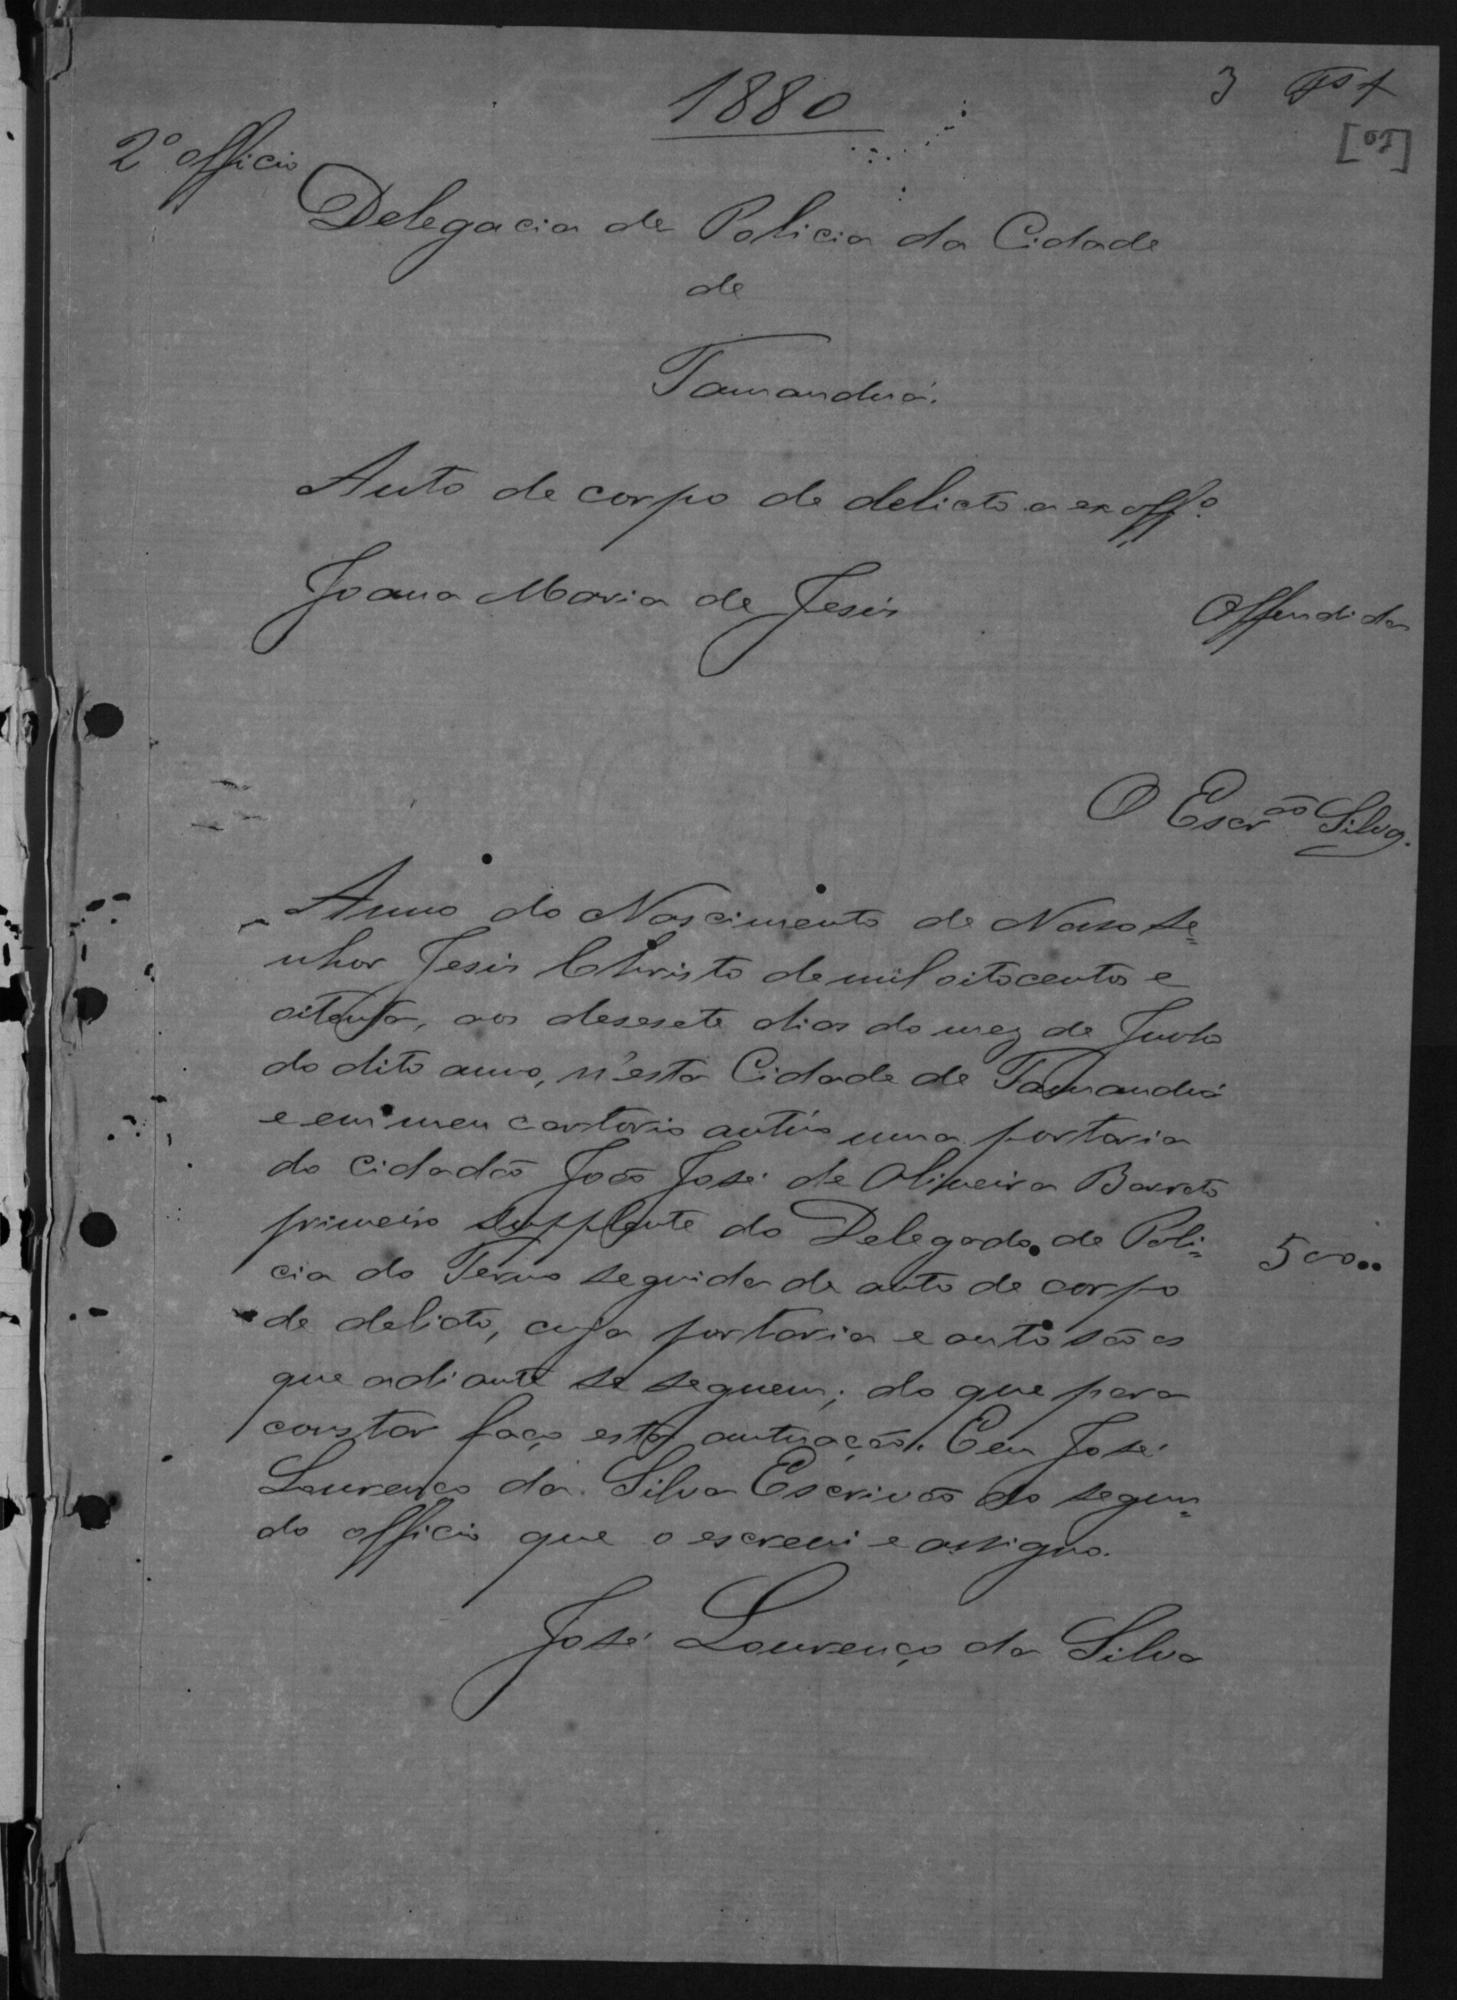 1880
3
[01]
2º officio
Delegacia de Policia da Cidade
de
Tamanduá.
Auto de corpo de delicto a ex offº
Joana Maria de Jesús
Offendida
O Escrᵃᵒ Silva.
Anno do Nascimento de Nosso Se=
nhor Jesús Christo de mil oitocentos e
oitenta, aos desesete dias do mez de
do dito anno, n'esta Cidade de Tamanduá
e em meu cartorio autúo uma portaria
do cidadão João José de Oliveira Barreto
primeiro supplente do Delegado de Poli=
cia do Termo seguida de auto de corpo
de delicto, cuja portaria e auto são os
que adiante se seguem; do que para
constar faço esta autuação. Eu José
Lourenço da Silva Escrivão do segun=
do officio que o escrevi e assigno.
500
José Lourenço da Silva